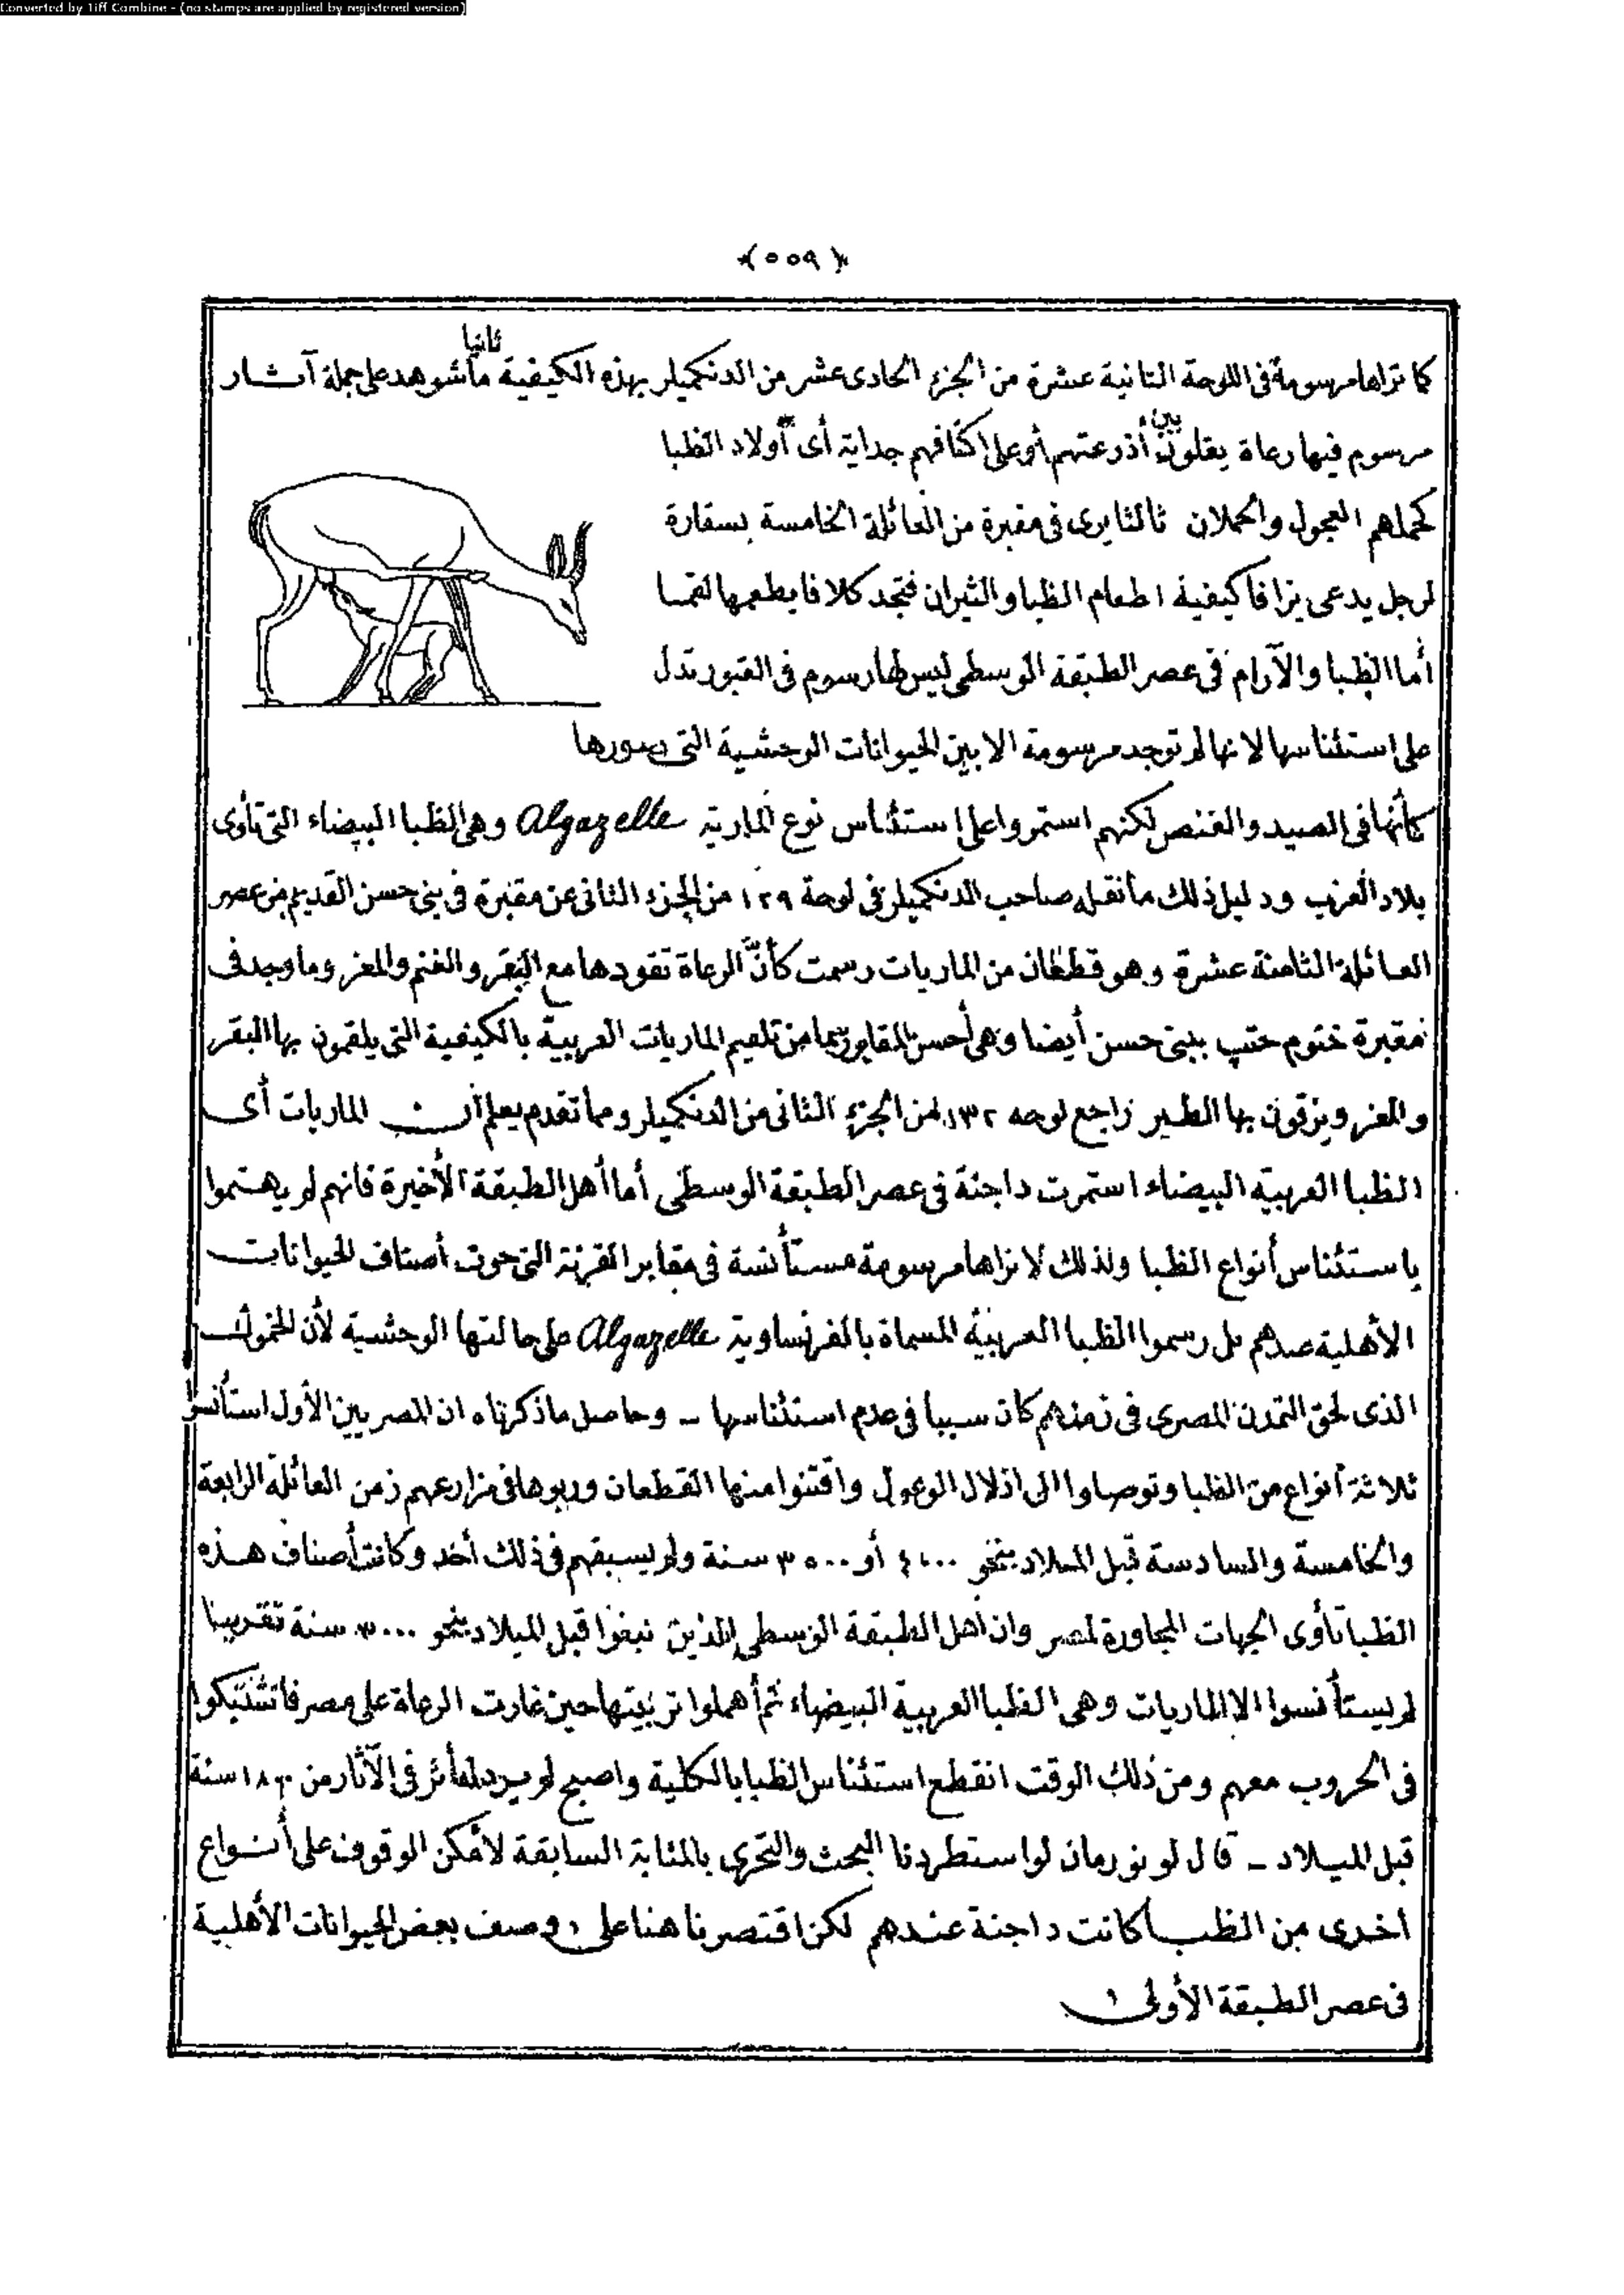 Converted by Tiff Combine - (no stamps are applied by registered version)
﴿٥٥٩﴾
كما تراها مرسومة فى اللوحة الثانية عشرة من الجزء الحادى عشر من الدنكميلر بهذه الكيفية ثانيا ما شوهد على جملة آثار
مرسوم فيها رعاة يقلون بين أذرعتهم أو على اكتافهم جداية أى أولاد الظبا
كحملهم العجول والحملان ثالثا يرى فى مقبرة من العائلة الخامسة بسقارة
لرجل يدعى بزافا كيفية اطعام الظبا والثيران فتجد كلافا يطعمها لقما
أما الظبا والآرام فى عصر الطبقة الوسطى ليس لها رسوم فى القبور تدل
على استئناسها لانها لم توجد مرسومة الا بين الحيوانات الوحشية التى صورها
كأنها فى الصيد والقنص لكنهم استمروا على استئناس نوع المارية Algazelle وهى الظبا البيضاء التى تأوى
بلاد العرب ودليل ذلك ما نقله صاحب الدنكميلر فى لوحة ١٢٩ من الجزء الثانى عن مقبرة فى بنى حسن القديم من عصر
العائلة الثامنة عشرة وهو قطعان من الماريات رسمت كأن الرعاة تقودها مع البقر والغنم والمعز وما وجد فى
مقبرة ختوم حتب ببنى حسن أيضا وهى أحسن المقابر رسما من تلقيم الماريات العربية بالكيفية التى يلقمون بها البقر
والمعز ويزقون بها الطير راجع لوحه ١٣٢ من الجزء الثانى من الدنكميلر ومما تقدم يعلم أن الماريات أى
الظبا العربية البيضاء استمرت داجنة فى عصر الطبقة الوسطى أما أهل الطبقة الأخيرة فانهم لم يهتموا
باستئناس أنواع الظبا ولذلك لا نراها مرسومة مستأنسة فى مقابر القرنة التى حوت أصناف الحيوانات
الأهلية عندهم بل رسموا الظبا العربية المسماة بالفرنساوية Algazelle على حالتها الوحشية لأن الخمول
الذى لحق التمدن المصرى فى زمنهم كان سببا فى عدم استئناسها - وحاصل ما ذكرناه ان المصريين الأول استأنسوا
ثلاثة أنواع من الظبا وتوصلوا الى اذلال الوعول واقتنوا منها القطعان وربوها فى مزارعهم زمن العائلة الرابعة
والخامسة والسادسة قبل الميلاد بنحو ٤٠٠٠ أو ٣٥٠٠ سنة ولم يسبقهم فى ذلك أحد وكانت أصناف هذه
الظبا تأوى الجهات المجاورة لمصر وان أهل الطبقة الوسطى الذين نبغوا قبل الميلاد بنحو ٣٠٠٠ سنة تقريبا
لم يستأنسوا الا الماريات وهى الظبا العربية البيضاء ثم أهملوا تربيتها حين غارت الرعاة على مصر فاشتبكوا
فى الحروب معهم ومن ذلك الوقت انقطع استئناس الظبا بالكلية واصبح لم يرد لها أثر فى الآثار من ١٨٠٠ سنة
قبل الميلاد - قال لونورمان لو استطردنا البحث والتحرى بالمثابة السابقة لأمكن الوقوف على أنواع
اخرى من الظبا كانت داجنة عندهم لكن اقتصرنا هنا على وصف بعض الحيوانات الأهلية
فى عصر الطبقة الأولى